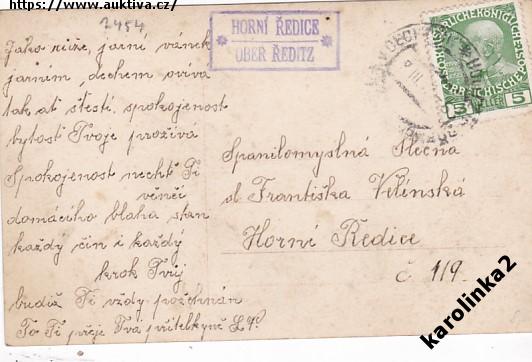 https://www.auktiva.cz/
2454,
HORNÍ ŘEDICE
OBER ŘEDITZ
Jako růže, jarní vánek
jarním, dechem ovívá
tak ať štěstí, spokojenost
bytost Tvoje prožívá
Spokojenost nechť Ti
věnčí
domácího blaha stan
každý čin i každý
krok Tvůj
budiž Ti vždy požehnán
To Ti přeje Tvá přítelkyně
Spanilomyslná Slečna
sl Františka Velínská
Horní Ředice
č 119.
5 5
karolinka2